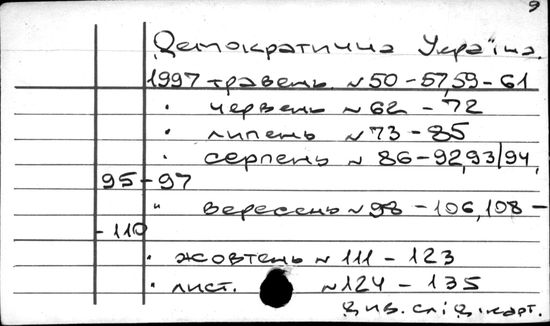 9
Демократична Україна.
1997 травень N 50-57,59-61
· червень N 62 - 72
· липень N 73 - 85
· серпень N 86-92,93/94,
95-97
" вересень N 98 - 106,108 -
- 110
· жовтень N 111 - 123
· лист. N 124 - 135
див. слід. карт.